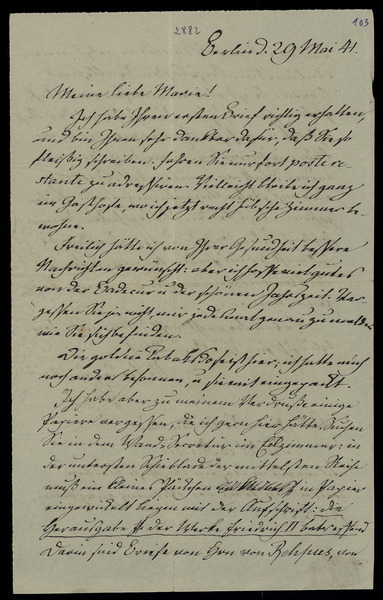 2882
103
Berlin d. 29 Mai 41.
Meine liebe Marie!
Ich habe Ihren ersten Brief richtig erhalten,
und bin Ihnen sehr dankbar dafür, daß Sie so
fleißig schreiben. Fahren Sie nur fort poste re-
stante zu adressiren. Vielleicht bleibe ich ganz
im Gasthofe, wo ich jetzt recht hübsche Zimmer be-
wohne.
Freilich hätte ich von Ihrer Gesundheit bessere
Nachrichten gewünscht: aber ich hoffe viel gutes
von der Badecur u der schönen Jahrszeit. Ver-
gessen Sie ja nicht, mir jedesmal genau zu melden
wie Sie sich befinden.
Die goldne Tabaksdose ist hier, ich hatte auch
noch andre bekommen, u sie mit eingepackt.
Ich habe aber zu meinem Verdruße einige
Papiere vergessen, die ich gern hier hätte. Suchen
Sie in dem Wand Secretär im Eckzimmer: in
der untersten Schieblade der mittelsten Reihe
muß ein kleines Päckchen in Papier
eingewickelt liegen mit der Aufschrift: die
Herausgabe der Werke Friedrich II betreffend
Darin sind Briefe von Hrn von Rehfues, von